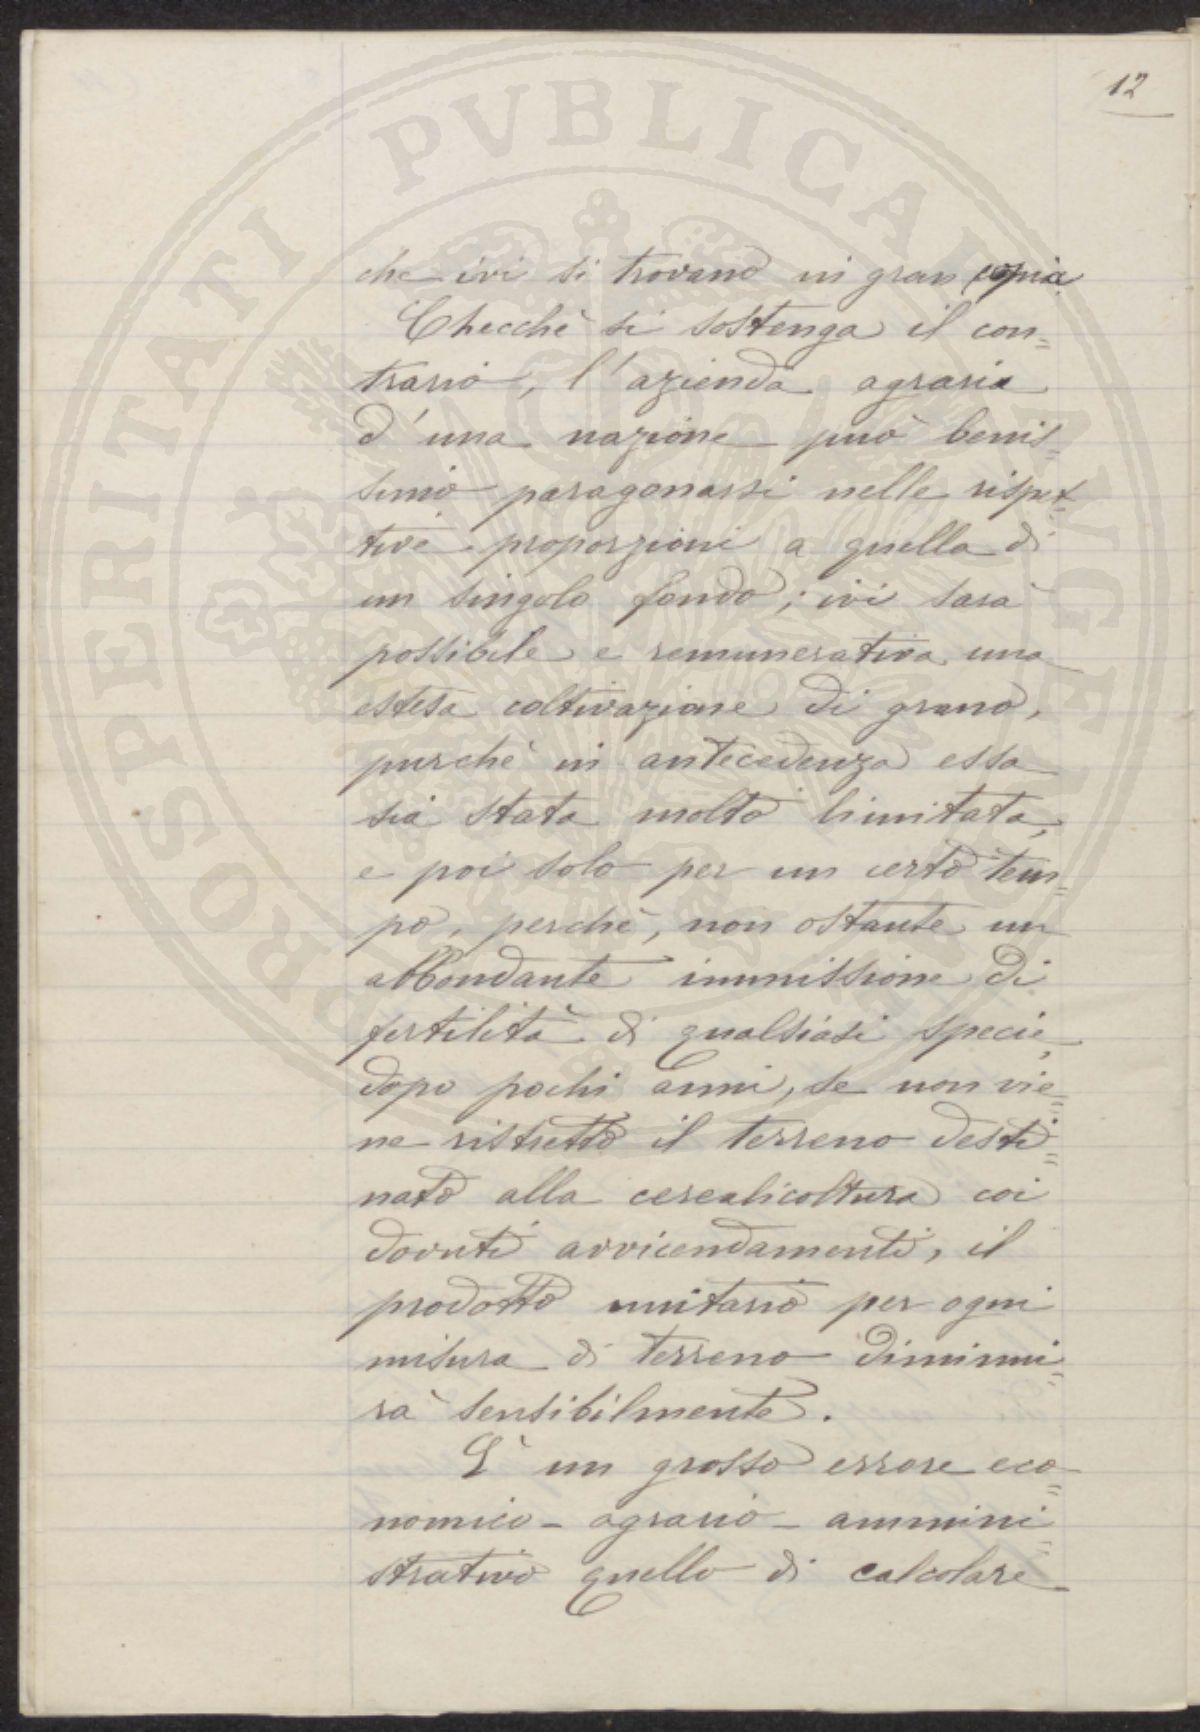 12
PROSPERITATI PVBLICAE AVGENDAE
che ivi si trovano in gran copia
Checchè si sostenga il con=
trario, l'azienda agraria
d'una nazione può benis=
simo paragonarsi nelle rispet=
tive proporzioni a quella di
un singolo fondo; ivi sarà
possibile e remunerativa una
estesa coltivazione di grano,
purchè in antecedenza essa
sia stata molto limitata,
e poi solo per un certo tem=
po, perchè, non ostante un
abbondante immissione di
fertilità di qualsiasi specie,
dopo pochi anni, se non vie=
ne ristretto il terreno desti=
nato alla cerealicoltura coi
dovuti avvicendamenti, il
prodotto unitario per ogni
misura di terreno diminui=
rà sensibilmente.
È un grosso errore eco=
nomico - agrario - ammini=
strativo quello di calcolare